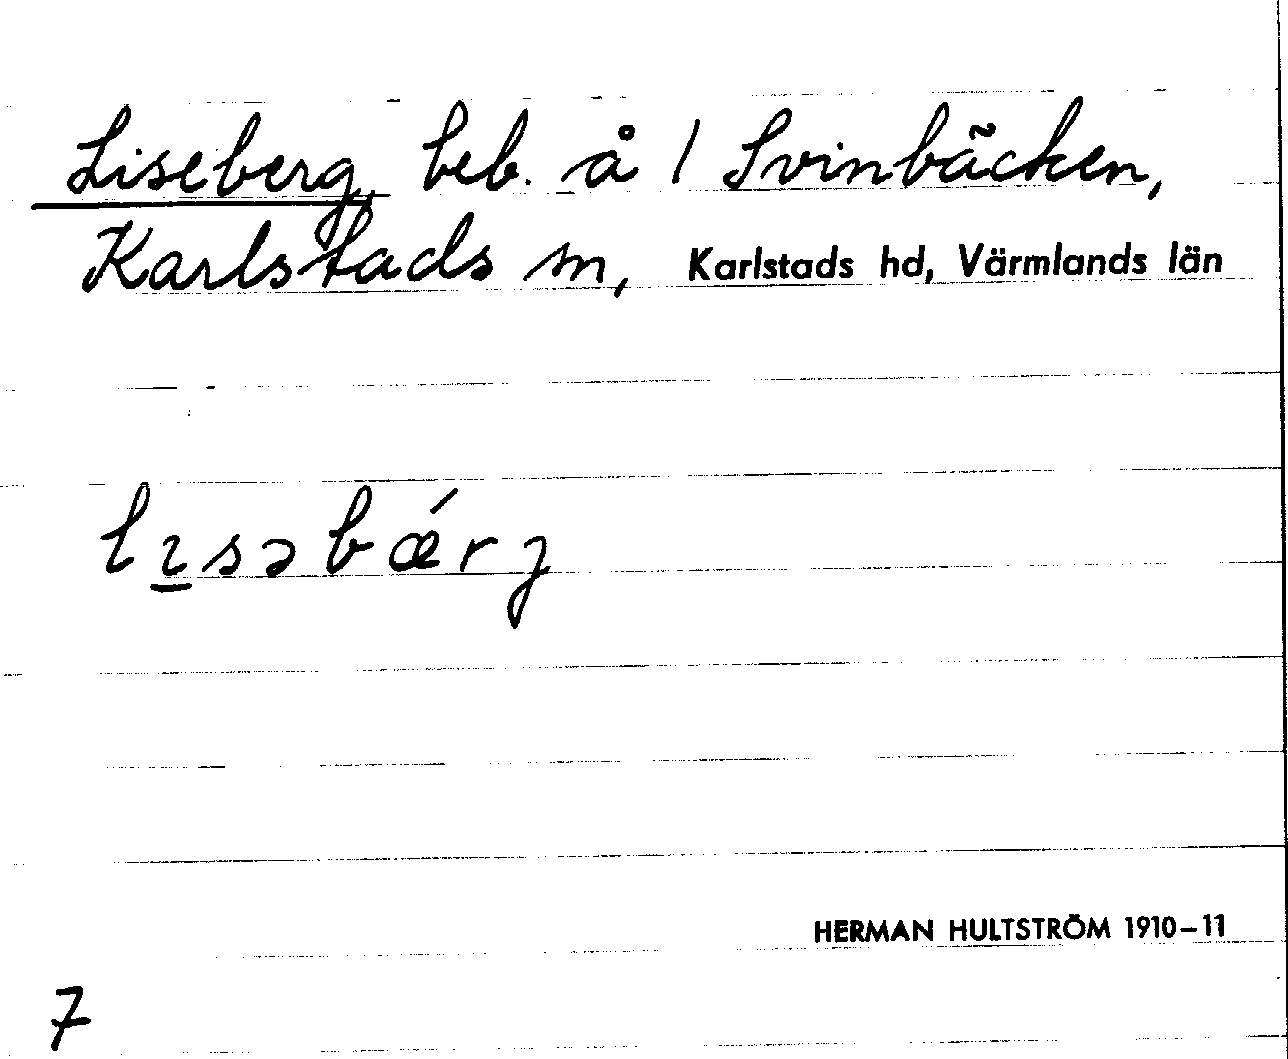 Liseberg, beb. å 1 Svinbäcken,
Karlstads sn, Karlstads hd, Värmlands län
lɩ̱səbǽrȷ
HERMAN HULTSTRÖM 1910–11
7